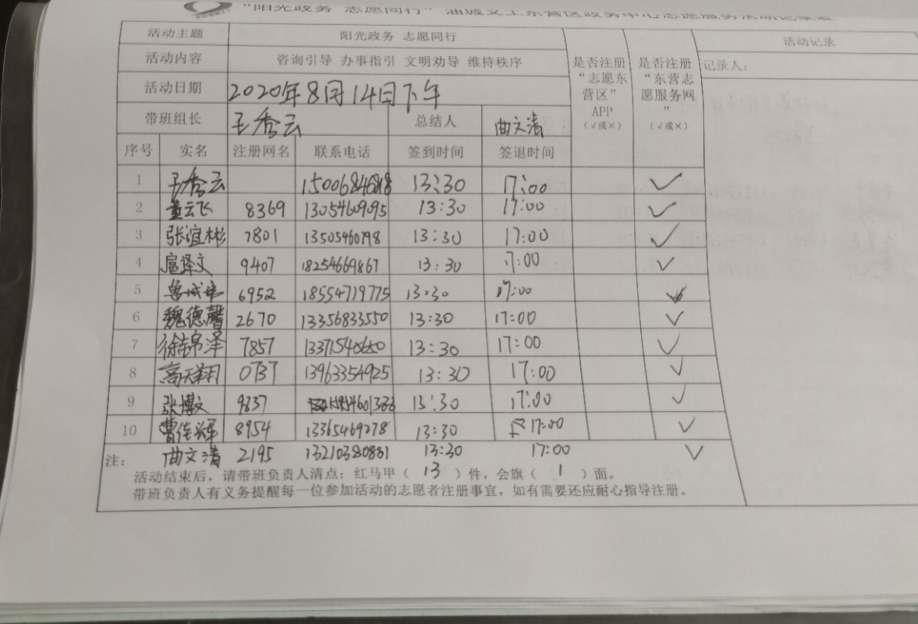 "阳光政务 志愿同行"
活动主题 阳光政务 志愿同行 是否注册"志愿东营区"APP(√或×) 是否注册"东营志愿服务网"(√或×) 活动记录
活动内容 咨询引导 办事指引 文明劝导 维持秩序 记录人:
活动日期 2020年8月14日下午
带班组长 王秀云 总结人 曲文清
序号 实名 注册网名 联系电话 签到时间 签退时间
1 王秀云 13:30 17:00 ✓
2 董云飞 8369 13054609095 13:30 17:00 ✓
3 张谊彬 7801 13:30 17:00 ✓
4 扈择文 9407 18254669867 13:30 17:00 ✓
5 6952 18554719775 13:30 17:00 ✓
6 魏德馨 2670 13356833550 13:30 17:00 ✓
7 徐锦泽 7857 13371540650 13:30 17:00 ✓
8 高天翔 0737 13963354925 13:30 17:00 ✓
9 张 9837 13:30 17:00 ✓
10 曹佳辉 8954 13365469278 13:30 17:00 ✓
注: 曲文清 2195 13210380831 13:30 17:00 ✓
活动结束后,请带班负责人清点:红马甲( 13 )件,会旗( 1 )面。
带班负责人有义务提醒每一位参加活动的志愿者注册事宜,如有需要还应耐心指导注册。